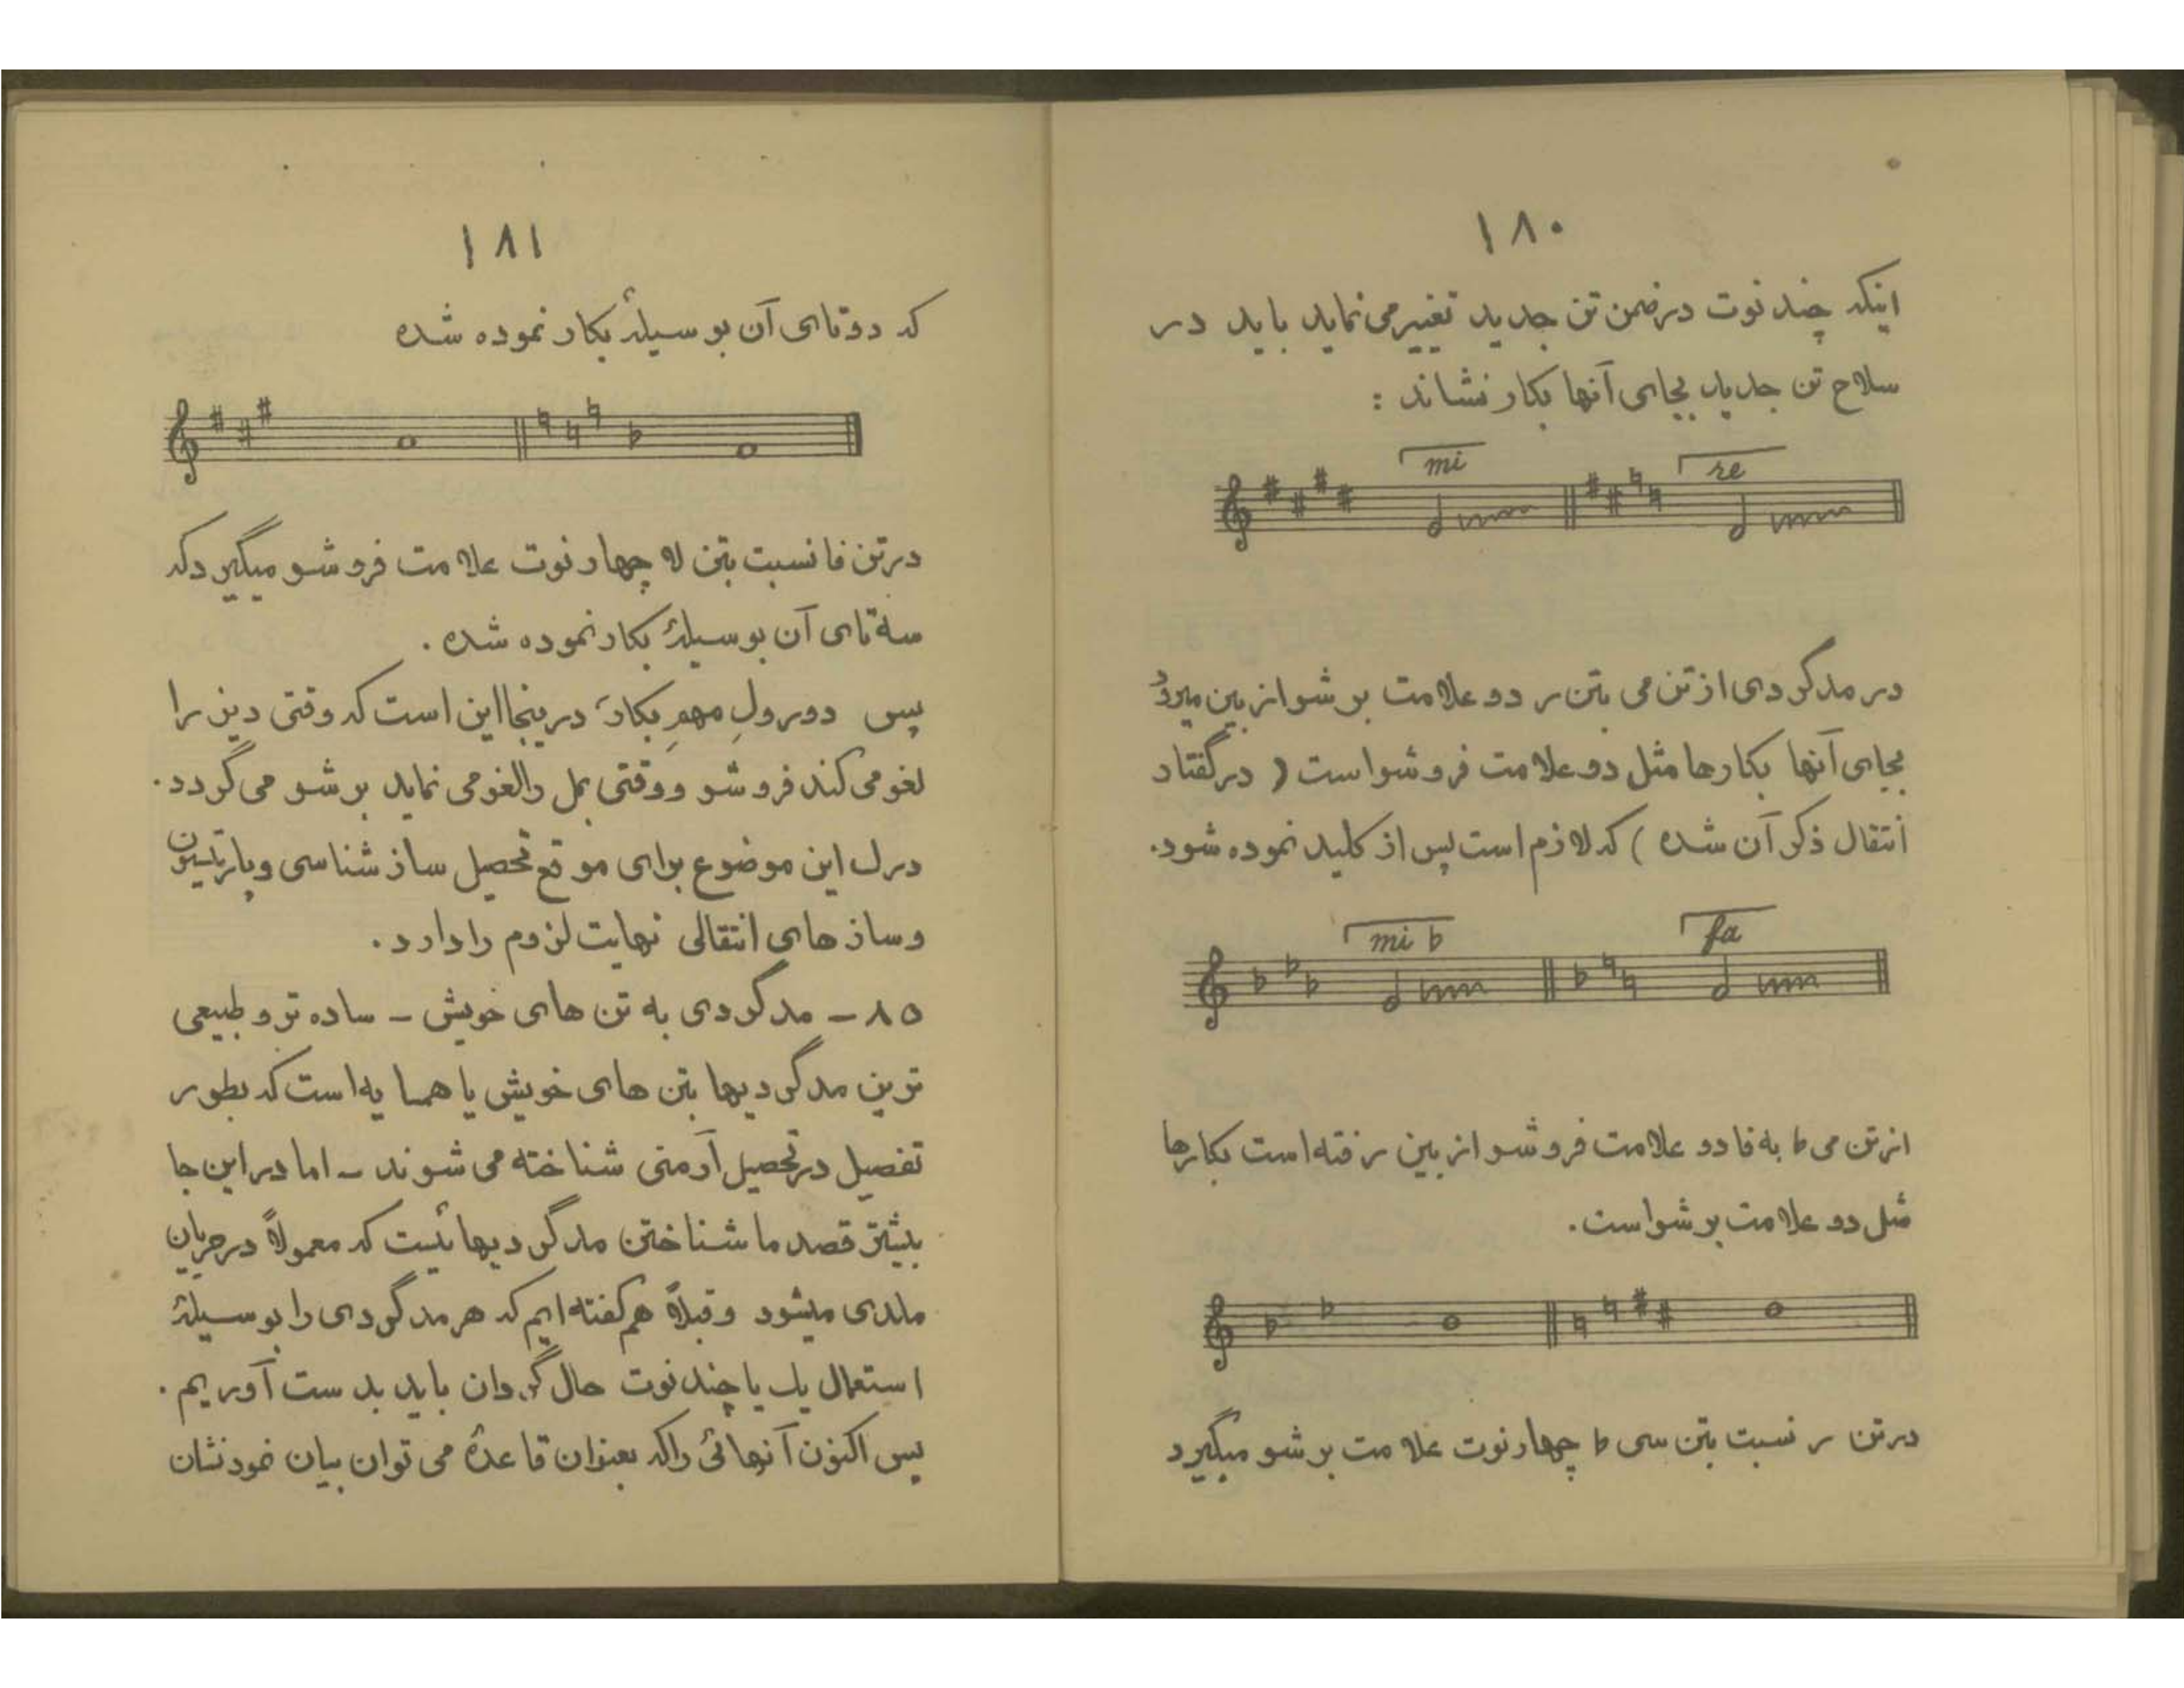 ۱۸۰
اینکه چند نوت در ضمن تن جدید تغییر می نماید باید در
سلاح تن جدید بجای آنها بکار نشاند :
mi re
در مدگردی از تن می بتن ر دو علامت بر شو از بین میرود
بجای آنها بکارها مثل دو علامت فرو شو است ( در گفتار
انتقال ذکر آن شده ) که لازم است پس از کلید نموده شود.
mi b fa
از تن می b به فا دو علامت فرو شو از بین رفته است بکارها
مثل دو علامت بر شو است.
در تن ر نسبت بتن سی b چهار نوت علامت بر شو میگیرد
۱۸۱
که دو تای آن بوسیلهٔ بکار نموده شده
در تن فا نسبت بتن لا چهار نوت علامت فرو شو میگیرد که
سه تای آن بوسیلهٔ بکار نموده شده .
پس دو رولِ مهمِ بکار در ینجا این است که وقتی دیز را
لغو می کند فرو شو و وقتی بمل را لغو می نماید بر شو می گردد .
درک این موضوع برای موقع تحصیل ساز شناسی و پارتیسیون
و ساز های انتقالی نهایت لزوم را دارد .
۸۵ – مدگردی به تن های خویش – ساده تر و طبیعی
ترین مدگردیها بتن های خویش یا همسایه است که بطور
تفصیل در تحصیل آرمنی شناخته می شوند – اما در این جا
بیشتر قصد ما شناختن مدگردیهائیست که معمولاً در جریان
ملدی میشود و قبلاً هم گفته ایم که هر مدگردی را بوسیلهٔ
استعمال یک یا چند نوت حال گردان باید بدست آوریم .
پس اکنون آنهائی را که بعنوان قاعدهٔ می توان بیان نمود نشان